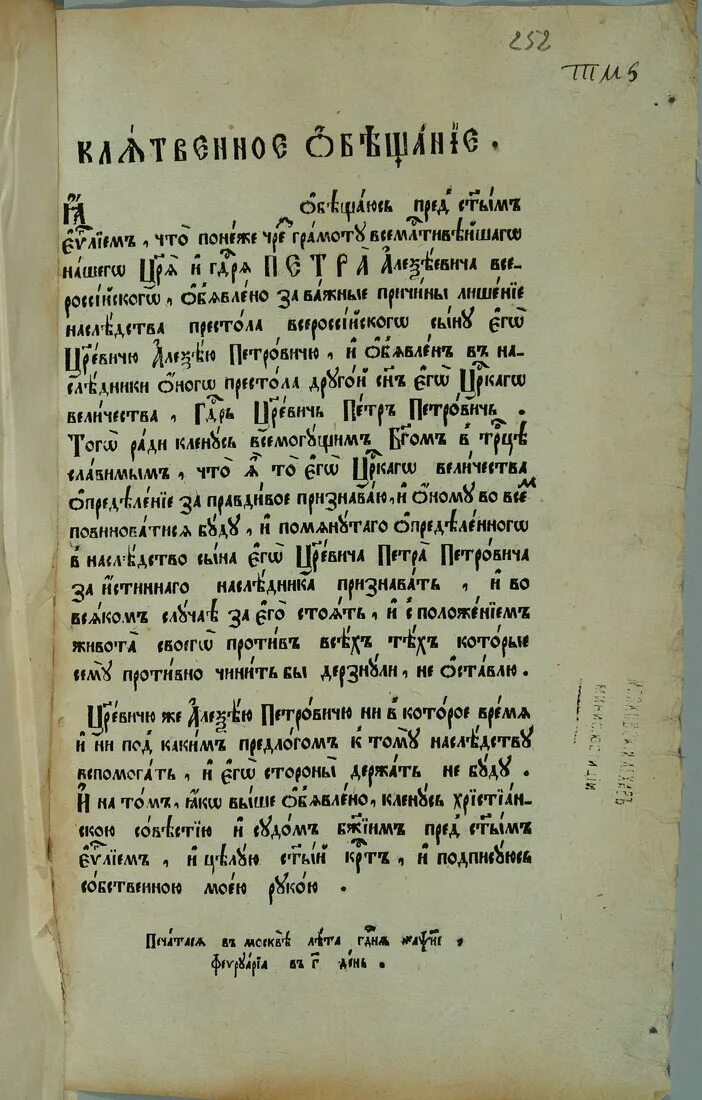 252
ТМ6
КЛѦ́ТВЕННОЕ Ѻ҆БѢЩА́НЇЕ .
Ꙗ҆́ Ѻ҆бѣща́юсь пред̾ ст҃ы́мъ
є҆ѵⷢ҇лїемъ , что̀ поне́же чреⷥ҇ гра́моту всемлⷭ҇тивѣ́йшагѡ
на́шегѡ Цр҃ѧ̀ и҆ гдⷭ҇рѧ̀ ПЕТРА̀ А҆леѯѣ́евича все-
россі́йскогѡ , ѻ҆б̾ѧ́влено за ва́жные причи́ны лише́нїе
наслѣ́дства престо́ла всероссі́йскогѡ сы́ну є҆гѡ̀
Цр҃е́вичю А҆леѯѣ́ю Петро́вичю , и҆ ѻ҆б̾ѧ́вленъ в̾ на-
слѣ́дники ѻ҆́ногѡ престо́ла друго́й сн҃ъ є҆гѡ̀ Цр҃кагѡ
вели́чества , Гдⷭ҇рь Цр҃е́вичь Пе́тръ Петро́вичь .
Тогѡ̀ ра́ди клену́сь всемогу́щимъ Бг҃омъ в̾ трⷪ҇цѣ
сла́вимымъ , что̀ ѧ҆̀ то̀ є҆гѡ̀ Цр҃кагѡ вели́чества
ѻ҆предѣле́нїе за пра́вдивое признава́ю , и҆ ѻ҆́ному во всеⷨ
повинова́тисѧ бу́ду , и҆ помѧ́нутаго ѻ҆предѣле́нногѡ
в̾ наслѣ́дство сы́на є҆гѡ̀ Цр҃е́вича Петра̀ Петро́вича
за и҆́стиннаго наслѣ́дника признава́ть , и҆ во
всѧ́комъ слу́чаѣ за є҆го̀ стоѧ́ть , и҆ с̾ положе́нїемъ
живота̀ своегѡ̀ про́тивъ всѣ́хъ тѣ́хъ кото́рые
сему̀ проти́вно чини́ть бы дерзну́ли , не ѻ҆ста́влю .
Цр҃е́вичю же А҆леѯѣ́ю Петро́вичю ни в̾ кото́рое вре́мѧ
и҆ ни под̾ каки́мъ предло́гомъ к̾ тому̀ наслѣ́дству
вспомога́ть , и҆ є҆гѡ̀ стороны̀ держа́ть не бу́ду .
И҆ на то́мъ , ꙗ҆́кѡ вы́ше ѻ҆б̾ѧ́влено , клену́сь хрїстїа́н-
скою со́вѣстїю и҆ судо́мъ бж҃їимъ пред̾ ст҃ы́мъ
є҆ѵⷢ҇лїемъ , и҆ цѣлу́ю ст҃ы́й крⷭ҇тъ , и҆ подпису́юсь
со́бственною мое́ю руко́ю .
Печа́тасѧ въ москвѣ̀ лѣ́та гдⷭ҇нѧ ҂аѱи҃і .
феѵруа́рїа въ г҃ де́нь .